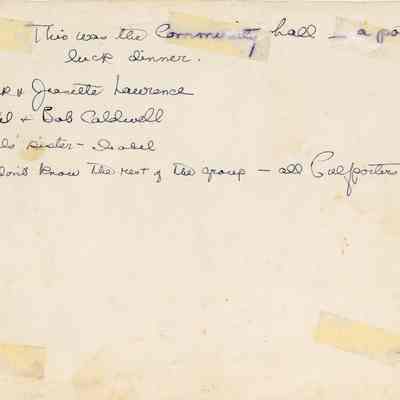 This was the Community hall - a po
luck dinner.
& Jeanette Lawrence
+ Bob Caldwell
sister - Isabel
don't know the rest of the group - all Gulfporters